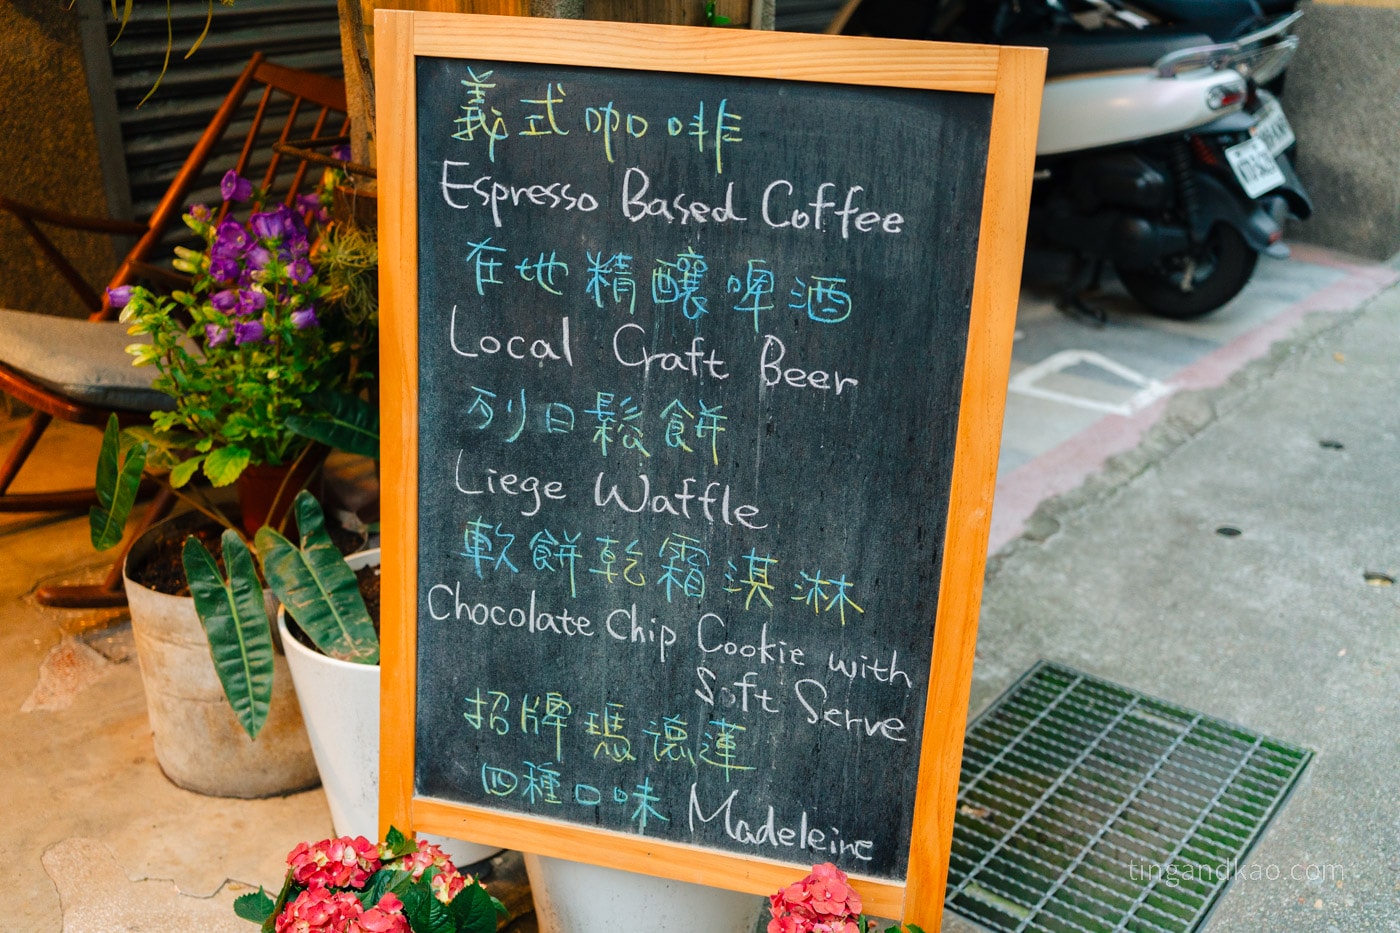 義式咖啡
Espresso Based Coffee
在地精釀啤酒
Local Craft Beer
列日鬆餅
Liege Waffle
軟餅乾霜淇淋
Chocolate Chip Cookie with
Soft Serve
招牌瑪德蓮
四種口味 Madeleine
tingandkao.com